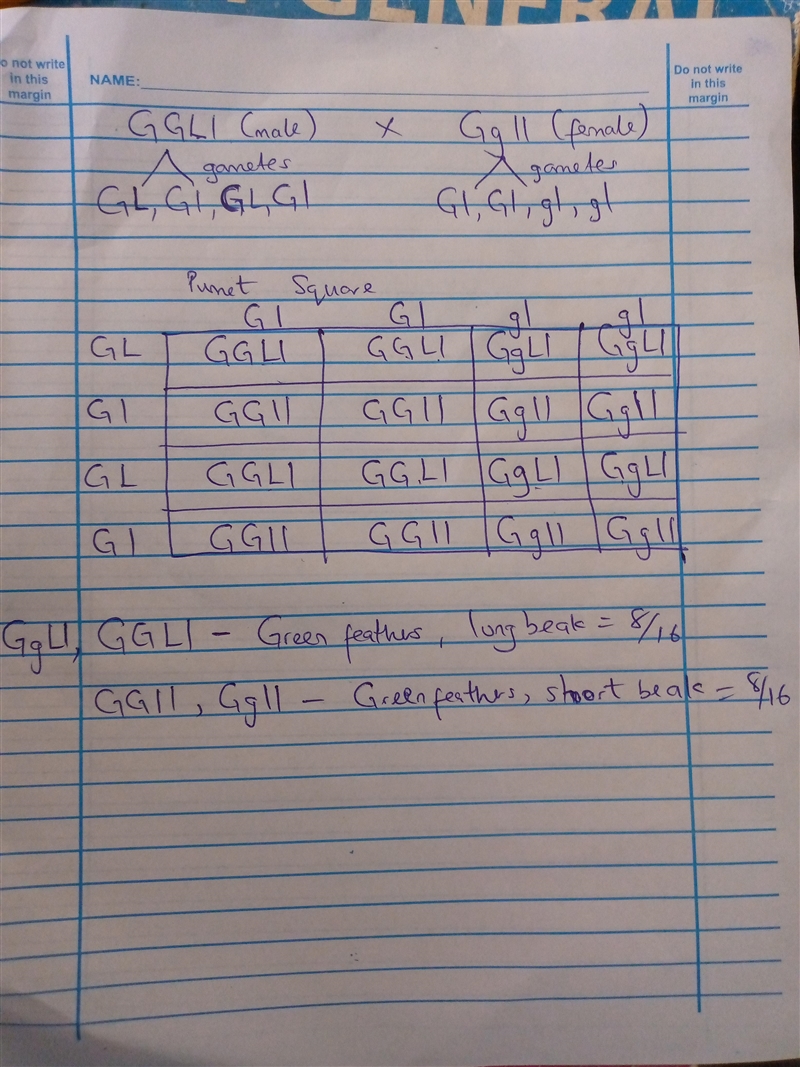 GENERAL
Do not write
in this
margin
NAME:
Do not write
in this
margin
GGLl (male) x Ggll (female)
gametes gametes
GL, Gl, GL, Gl Gl, Gl, gl, gl
Punet Square
Gl Gl gl gl
GL GGLl GGLl GgLl GgLl
Gl GGll GGll Ggll Ggll
GL GGLl GGLl GgLl GgLl
Gl GGll GGll Ggll Ggll
GgLl, GGLl – Green feathers, long beak = 8/16
GGll, Ggll – Green feathers, short beak = 8/16